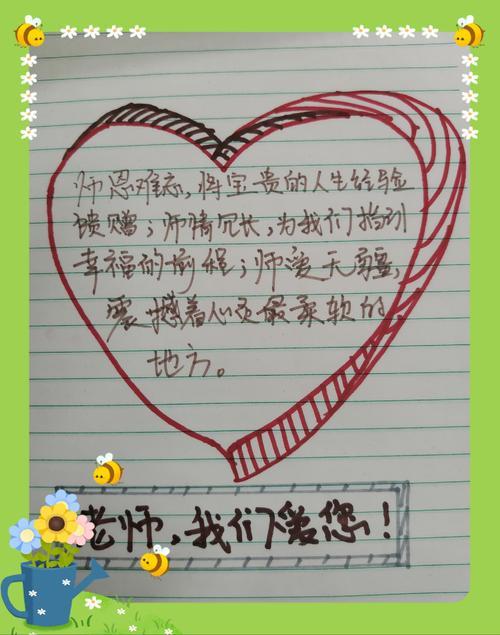 师恩难忘,将宝贵的人生经验
馈赠;师情冗长,为我们指引
幸福的前程;师爱无疆,
震撼着心灵最柔软的
地方。
老师,我们爱您!